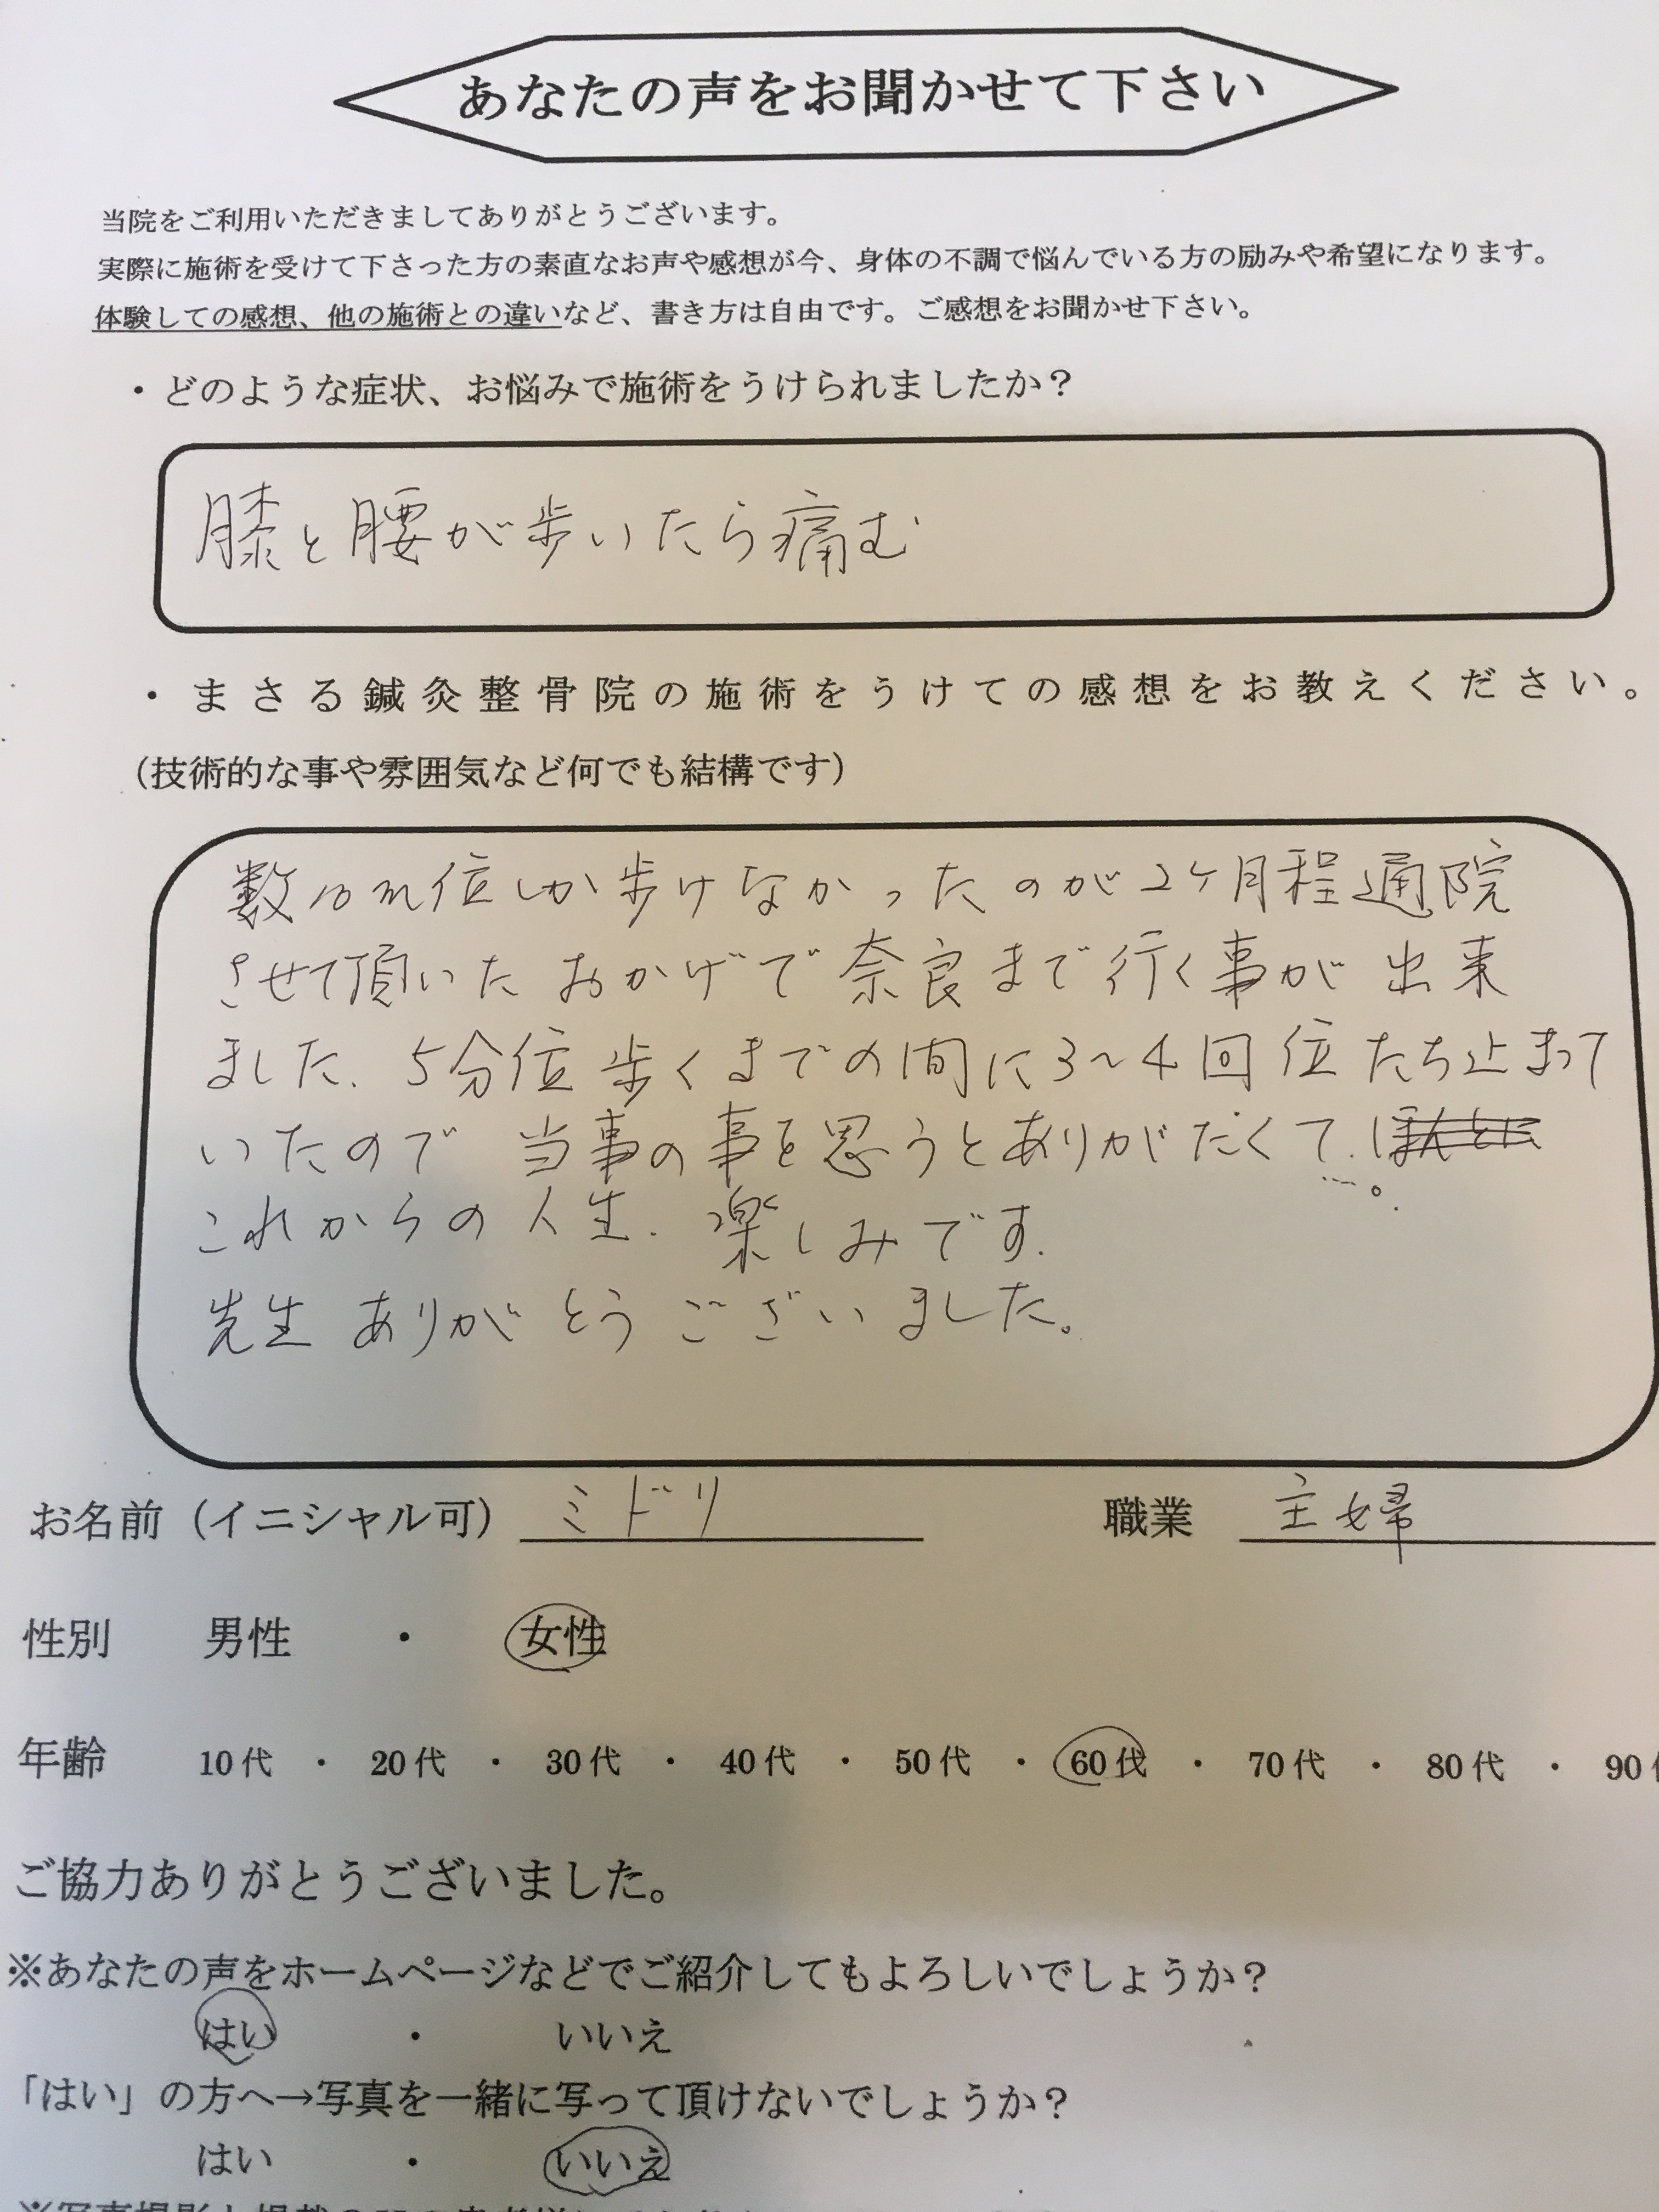 あなたの声をお聞かせて下さい
当院をご利用いただきましてありがとうございます。
実際に施術を受けて下さった方の素直なお声や感想が今、身体の不調で悩んでいる方の励みや希望になります。
体験しての感想、他の施術との違いなど、書き方は自由です。ご感想をお聞かせ下さい。
・どのような症状、お悩みで施術をうけられましたか？
膝と腰が歩いたら痛む
・まさる鍼灸整骨院の施術をうけての感想をお教えください。
（技術的な事や雰囲気など何でも結構です）
数10m位しか歩けなかったのが2ヶ月程通院
させて頂いたおかげで奈良まで行く事が出来
ました. 5分位歩くまでの間に3〜4回位たち止まって
いたので 当事の事を思うとありがたくて....。
これからの人生. 楽しみです.
先生 ありがとうございました。
お名前（イニシャル可） ミドリ 職業 主婦
性別 男性 ・ 女性
年齢 10代 ・ 20代 ・ 30代 ・ 40代 ・ 50代 ・ 60代 ・ 70代 ・ 80代 ・ 90
ご協力ありがとうございました。
※あなたの声をホームページなどでご紹介してもよろしいでしょうか？
はい ・ いいえ
「はい」の方へ→写真を一緒に写って頂けないでしょうか？
はい ・ いいえ